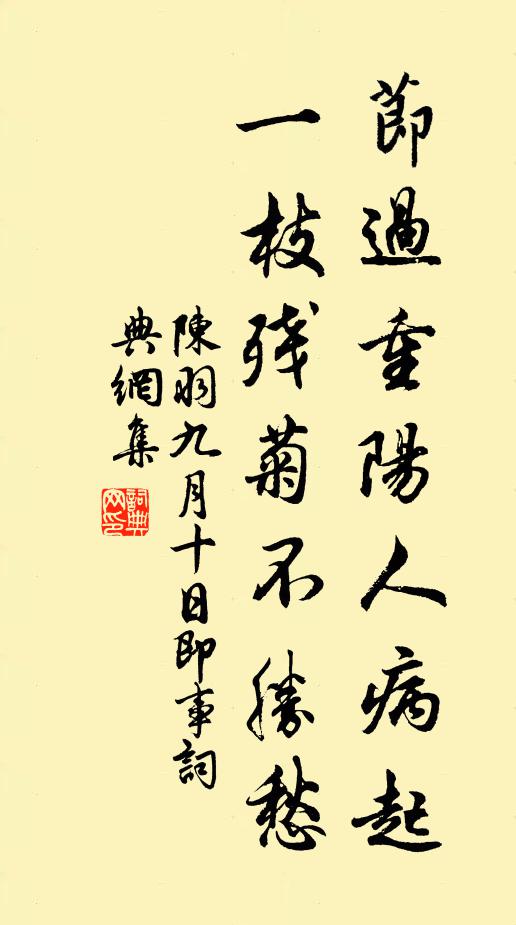 節過重陽人病起
一枝残菊不勝愁
陳羽九月十日即事詞
典網集
詞典網印